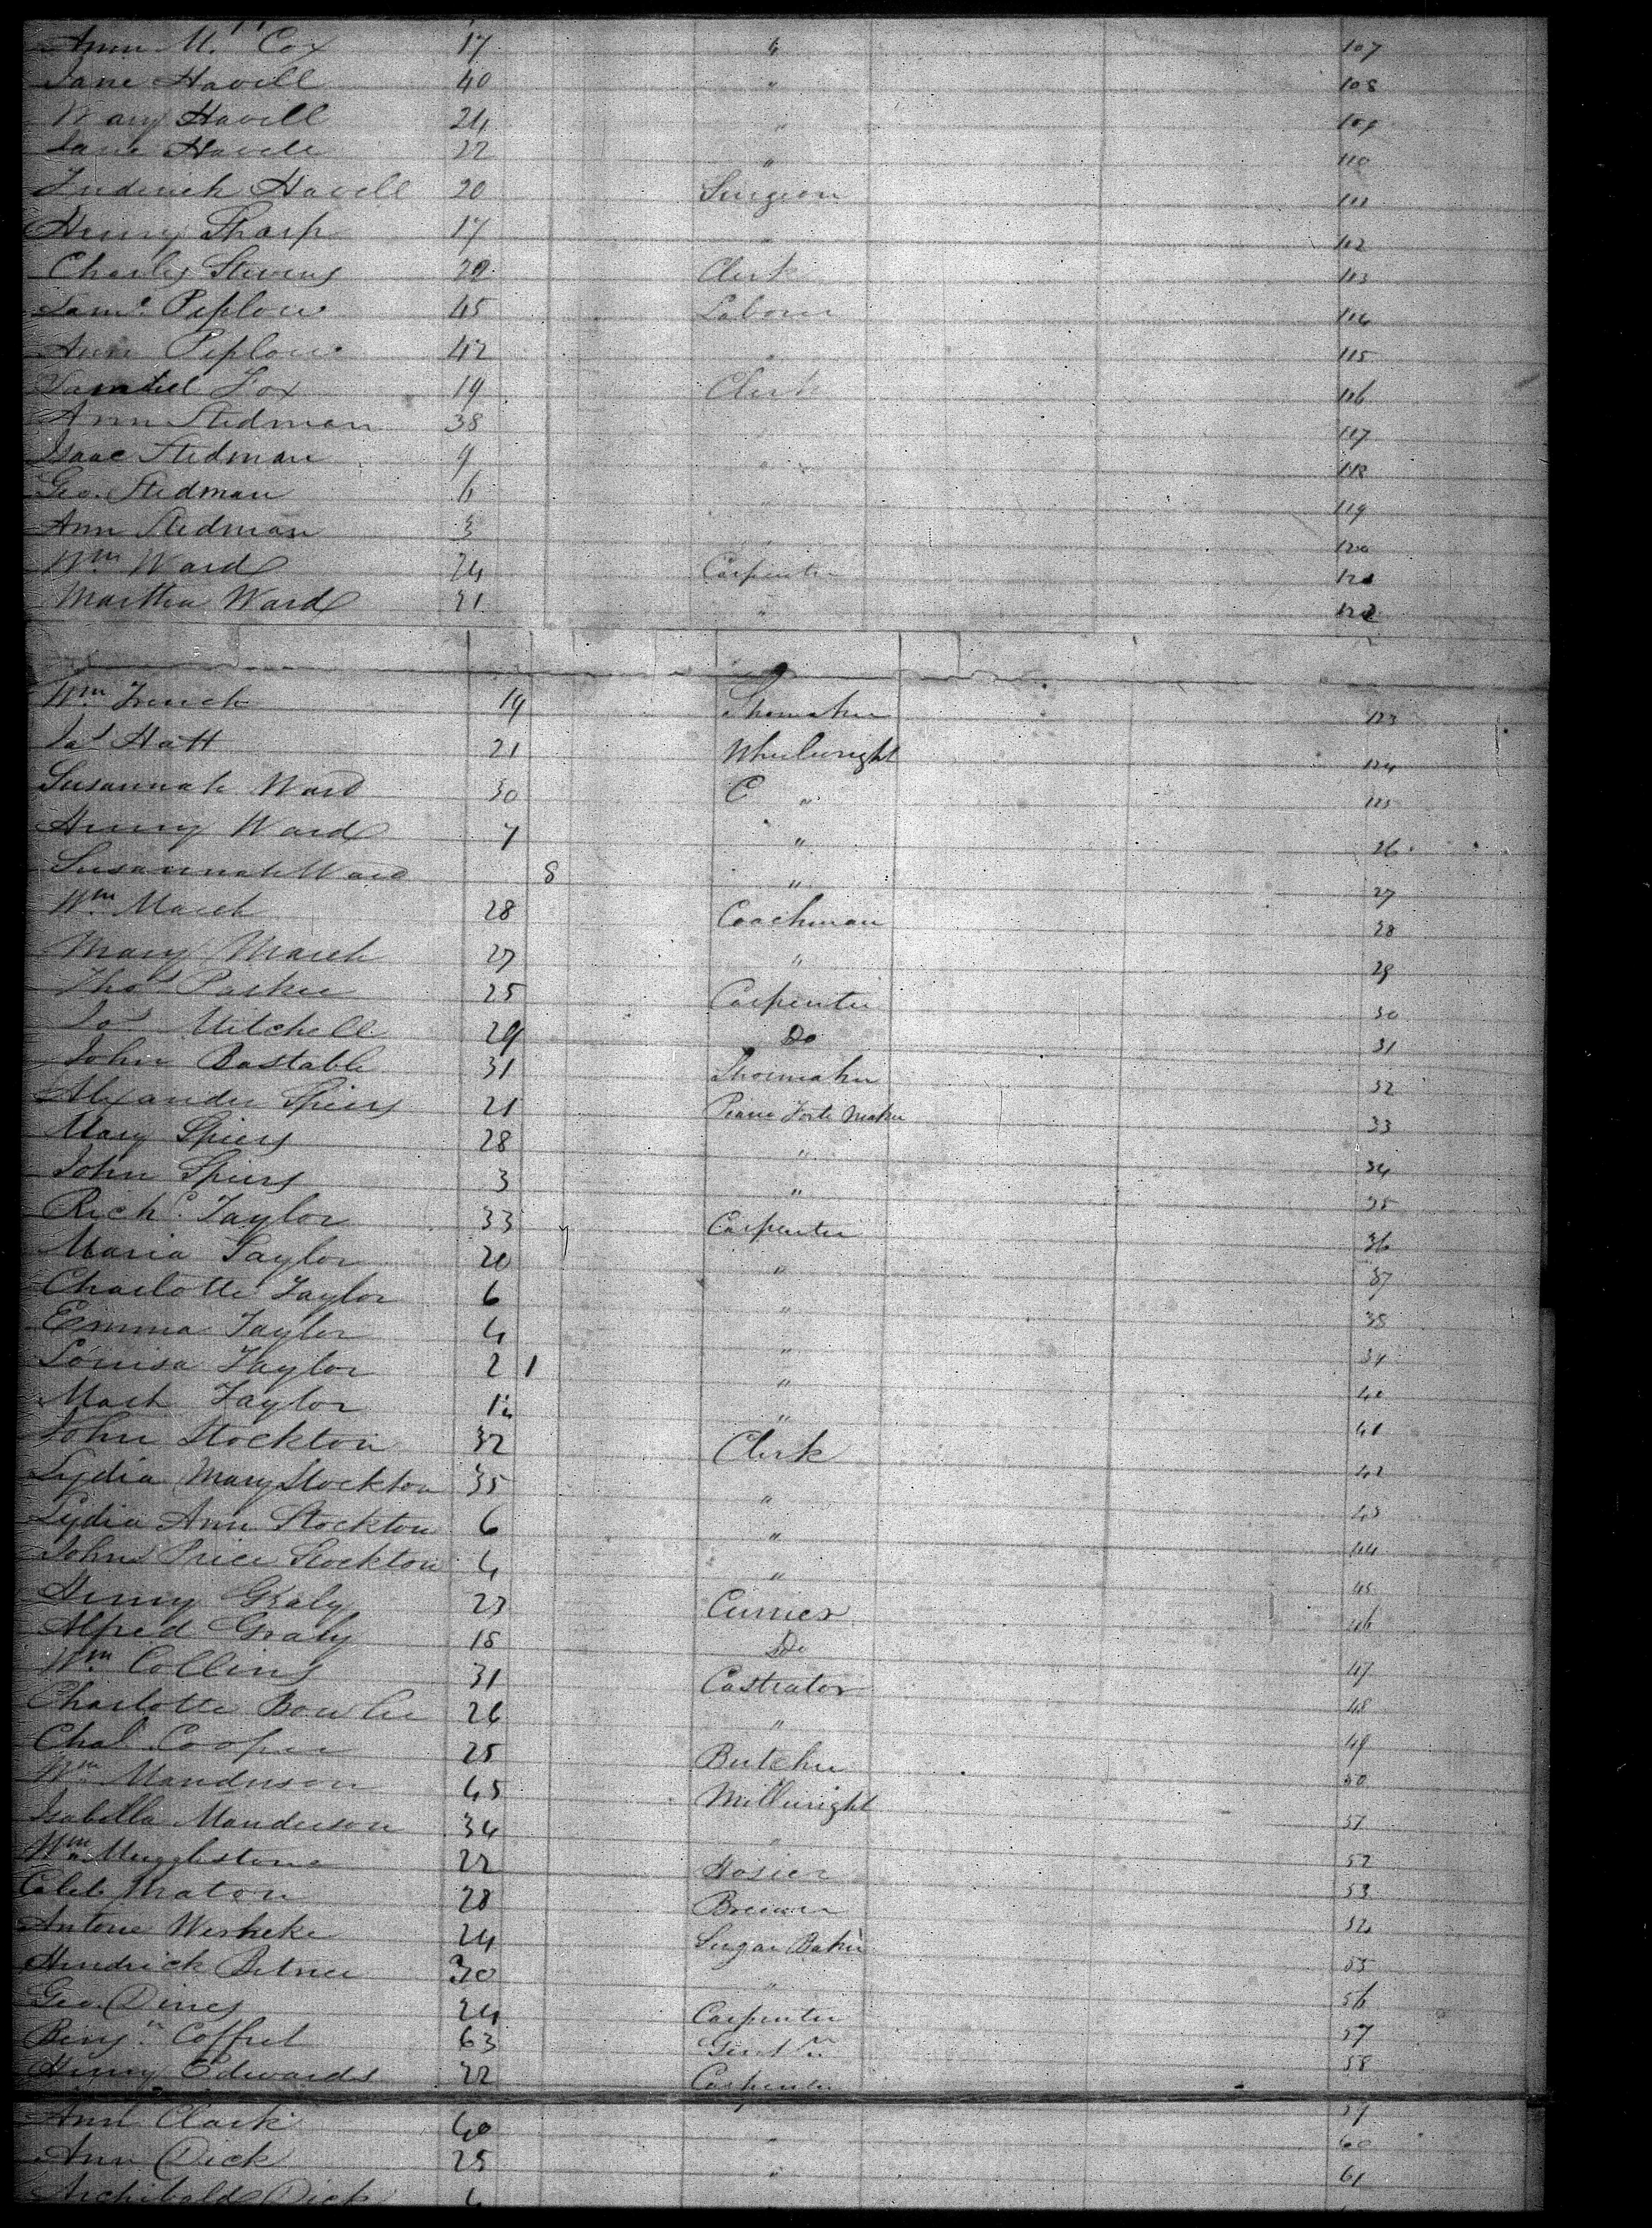 Ann M. Cox 17 " 107
Jane Havell 40 " 108
Mary Havell 24 " 109
Jane Havell 22 " 110
Frederick Havell 20 Surgeon 111
Henry Sharp 17 " 112
Charles Stevens 29 Clerk 113
Saml. Peplow 45 Laborer 114
Ann Peplow 42 " 115
Samuel Fox 19 Clerk 116
Ann Stedman 38 117
Isaac Stedman 9 " 118
Geo. Stedman 6 " 119
Ann Stedman 3 " 120
Wm Ward 24 Carpenter 121
Martha Ward 21 " 122
Wm French 19 Shoemaker 123
Jas Hatt 21 Wheelwright 124
Susannah Ward 30 C " 125
Henry Ward 7 " 26
Susannah Ward 8 " 27
Wm March 28 Coachman 28
Mary March 27 " 29
Thos Parker 25 Carpenter 30
Jas Mitchell 29 Do 31
John Bastable 31 Shoemaker 32
Alexander Spiers 21 Piano Forte Maker 33
Mary Spiers 28 " 34
John Spiers 3 " 35
Richd. Taylor 33 Carpenter 36
Maria Taylor 20 " 37
Charlotte Taylor 6 " 38
Emma Taylor 4 " 39
Louisa Taylor 2 1 " 40
Mark Taylor " 41
John Stockton 32 Clerk 42
Lydia Mary Stockton 35 " 43
Lydia Ann Stockton 6 " 44
John Price Stockton 4 " 45
Henry Graly 23 Currier 46
Alfred Graly 18 Do 47
Wm Collins 31 Castrator 48
Charlotte Bowler 26 " 49
Chas Cooper 25 Butcher 50
Wm Manderson 45 Millwright 51
Isabella Manderson 34 " 52
Wm Mugglestone 22 Hosier 53
Caleb Maton 28 Brewer 54
Antone Wesheke 24 Sugar Baker 55
Hendrick Bitner 30 " 56
Geo. Dines 24 Carpenter 57
Benjn Coffrel 63 Gentn 58
Henry Edwards 22 Carpenter 59
Ann Clark 40 " 60
Ann Dick 25 " 61
Archibald Dick